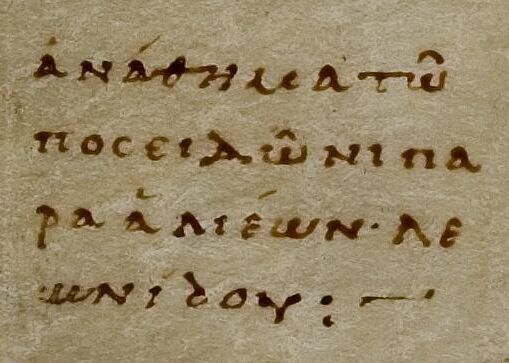 ἀνάθημα τῶ
ποσειδῶνι πα
ρα ἁλιέων· λε
ωνίδου :—